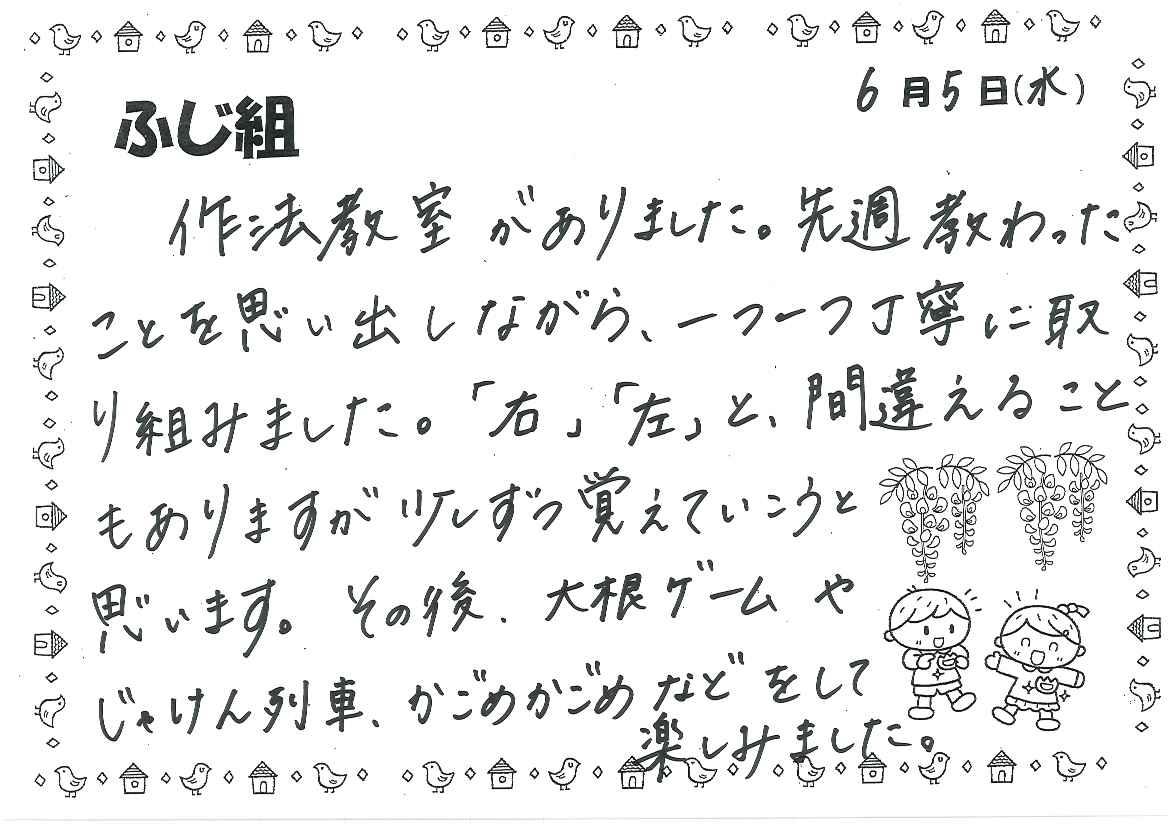 6月5日(水)
ふじ組
作法教室がありました。先週教わった
ことを思い出しながら、一つ一つ丁寧に取
り組みました。「右」「左」と、間違えること
もありますが少しずつ覚えていこうと
思います。その後、大根ゲームや
じゃけん列車、かごめかごめなどをして
楽しみました。